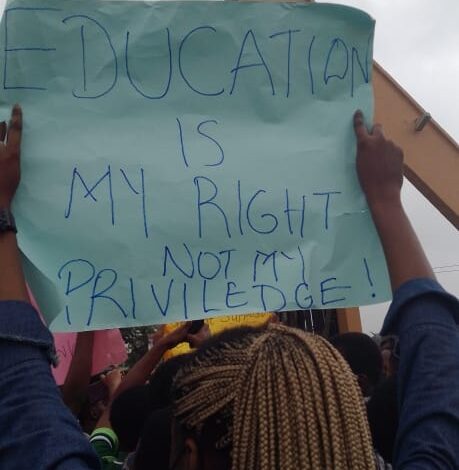 EDUCATION
IS
MY RIGHT
NOT MY
PRIVILEDGE!